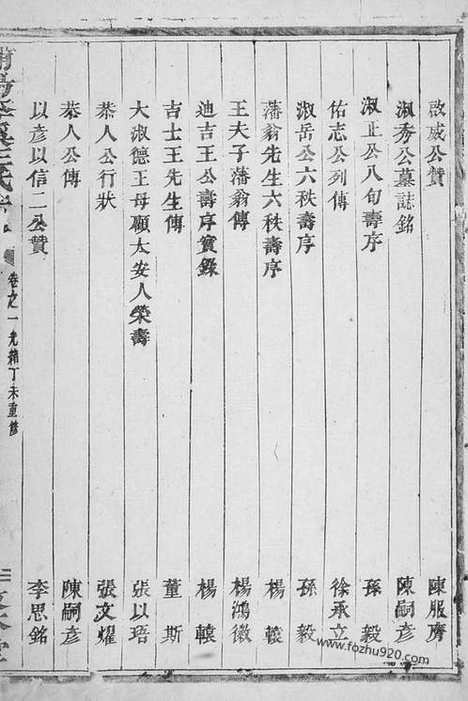 啟咸公贊 陳服膺
淑秀公墓誌銘 陳嗣彥
淑正公八旬壽序 孫毅
佑志公列傳 徐承立
淑岳公六秩壽序 孫毅
藩翁先生六秩壽序 楊轅
王夫子藩翁傳 楊鴻徽
迪吉王公壽序實錄 楊轅
吉士王先生傳 董斯
大淑德王母顧太安人榮壽 張以珸
恭人公行狀 張文燿
恭人公傳 陳嗣彥
以彥以信二公贊 李思銘
王氏
卷之一 光緒丁未重修
www.fozhu920.com